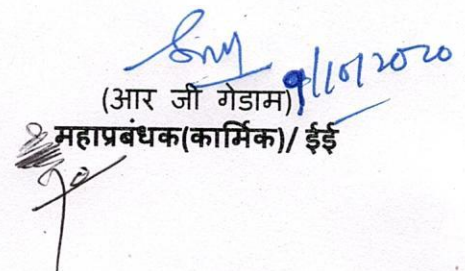 9/10/2020
(आर जी गेडाम)
महाप्रबंधक(कार्मिक)/ ईई